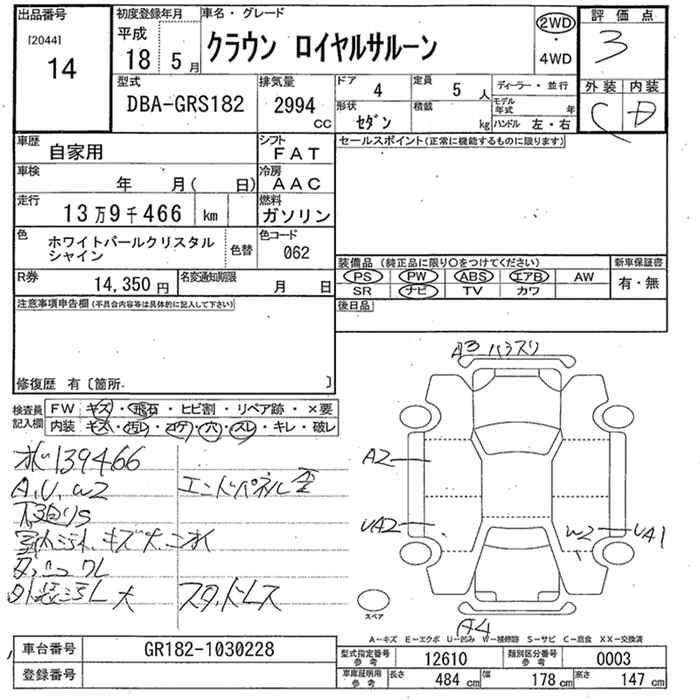 出品番号
[2044]
14
初度登録年月
平成
18 5月
車名・グレード
クラウン ロイヤルサルーン
2WD
・
4WD
評価点
3
外装 内装
C D
型式
DBA-GRS182
排気量
2994 CC
ドア 4
定員 5人
形状 セダン
積載 kg
ディーラー・並行
モデル年式 年
ハンドル 左・右
車歴
自家用
シフト
FAT
セールスポイント(正常に機能するものに限ります)
車検
年 月( 日)
冷房
AAC
走行
13万9千466 km
燃料
ガソリン
色
ホワイトパールクリスタル
シャイン
色替
色コード
062
装備品(純正品に限り○をつけてください)
新車保証書
PS PW ABS エアB AW
SR ナビ TV カワ
有・無
R券
14,350円
名変通知期限
月 日
後日品
注意事項申告欄(不具合内容等は具体的に記入して下さい)
修復歴 有〔箇所 〕
検査員
記入欄
FW キズ・飛石・ヒビ割・リペア跡・×要
内装 キズ・汚レ・コゲ・穴・スレ・キレ・破レ
139466
A,U,W2
エンドパネル歪
室内汚れ、キズ大、ニオイ
外装汚レ大
スタッドレス
A3 バンスリ
A2
UA2
W2
UA1
スペア
A4
A-キズ E-エクボ U-凹み W-補修跡 S-サビ C-腐食 XX-交換済
車台番号
GR182-1030228
登録番号
型式指定番号
参考
12610
類別区分番号
参考
0003
車庫証明用
参考
長さ 484 cm
幅 178 cm
高さ 147 cm